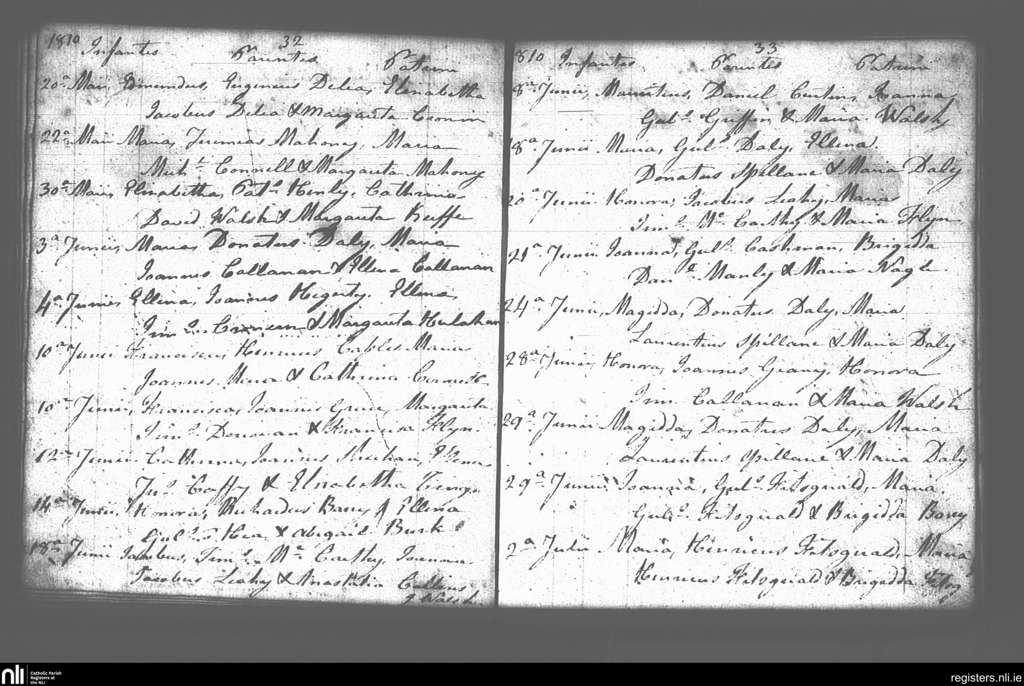 1810 Infantes 32 Parentes Patrini
20a Maii, Edmundus, Eugenius Delea, Elisabetha
Jacobus Delea & Margarita Cronin
22a Maii Maria, Jeremias Mahony, Maria
Michl Connell & Margarita Mahony
30a Maii, Elisabetha, Pats Henly, Catherina
David Walsh & Margarita Keeffe
3a Junii, Maria, Donatus Daly, Maria
Joannes Callanan & Ellena Callanan
4a Junii, Ellena, Joannes Hegerty, Ellena
& Margarita Hulahan
10a Junii Franciscus Henricus Cables Maria
Joannes & Catherina
10a Junii, Francisca, Joannes Margarita
Donovan & Francisca Flyn
12a Junii Catherina, Joannes
Caffy & Elisabetha
14a Junii, Honora, Richardus Barry & Ellena
Guls & Abigail Burke
18a Junii Jacobus, Timo Mc Carthy, Joanna
Jacobus Leahy & Anastatia Collins
Walsh
1810 Infantes 33 Parentes Patrini
8a Junii, Mauritius, Daniel Hanna
Guls Griffin & Maria Walsh
8a Junii Maria, Guls Daly, Ellena
Donatus Spillane & Maria Daly
20a Junii Honora, Jacobus Leahy, Maria
Timo Mc Carthy & Maria Flyn
21a Junii Joanna, Guls Cashman, Brigidda
Danl Manly & Maria Nagle
24a Junii, Magidda, Donatus Daly, Maria
Laurentius Spillane & Maria Daly
28a Junii, Honora, Joannes Geany, Honora
Tim Callanan & Maria Walsh
29a Junii Magidda, Donatus Daly, Maria
Laurentius Spillane & Maria Daly
29a Junii, Joanna, Guls Fitsgerald, Maria
Guls Fitsgerald & Brigidda Barry
2a Julii Maria, Henricus Fitsgerald, Maria
Henricus Fitsgerald & Brigidda
nli
Catholic Parish
Registers at
the NLI
registers.nli.ie